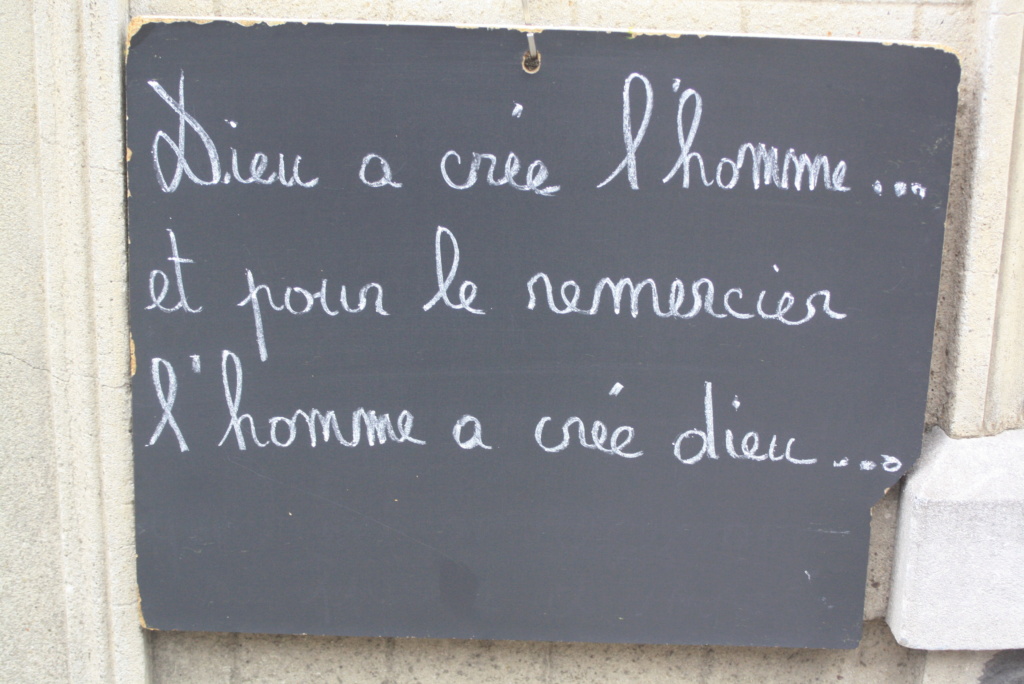 Dieu a crée l'homme...
et pour le remercier
l'homme a crée dieu...